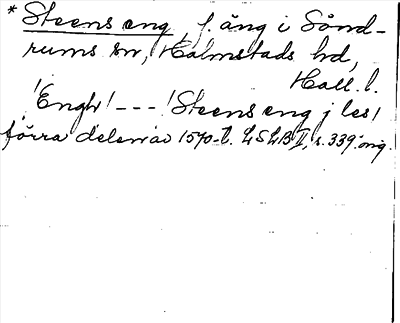 * Steens eng, f. äng i Sönd-
rums sn, Halmstads hd,
Hall. l.
'Engh' --- 'Steens eng j les'
förra delen av 1570-t. LSLB II, s. 339. orig.